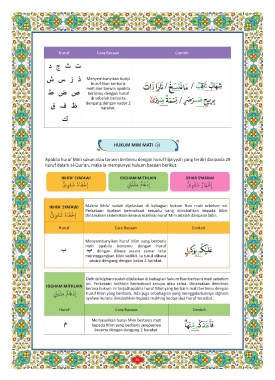 Huruf Cara Bacaan Contoh
ت ث ج د
ذ ز س ش
ص ض ط
ظ ف ق
ك
Menyembunyikan bunyi
huruf Nun berbaris
mati dan tanwin apabila
bertemu dengan huruf
di sebelah berserta
dengung dengan kadar 2
harakat.
HUKUM MIM MATI
Apabila huruf Mim sakan atau tanwin bertemu dengan huruf hijaiyyah yang terdiri daripada 28
huruf dalam al-Qur'an, maka ia mempunyai hukum bacaan berikut:
IKHFA' SYAFAWI IDGHAM MITHLAIN IZHAR SYAFAWI
إِخْفَاءٌ شَفَوِيٌّ
إِظْهَارٌ شَفَوِيٌّ
IKHFA' SYAFAWI
إِخْفَاءٌ شَفَوِيٌّ
Makna ikhfa' sudah dijelaskan di bahagian hukum Nun mati sebelum ini.
Perkataan Syafawi bermaksud sesuatu yang dinisbahkan kepada bibir.
Dinamakan sedemikian kerana makhraj huruf Mim adalah daripada bibir.
Huruf Cara Bacaan Contoh
ب
Menyembunyikan huruf Mim yang berbaris
mati apabila bertemu dengan huruf
ب dengan dibaca secara samar iaitu
merenggangkan bibir sedikit. Ia turut dibaca
secara dengung dengan kadar 2 harakat.
IDGHAM MITHLAIN
Definisi idgham sudah dijelaskan di bahagian hukum Nun berbaris mati sebelum
ini. Perkataan mithlain bermaksud serupa atau sama. Dinamakan demikian
kerana hukum ini terjadi apabila huruf Mim yang berbaris mati bertemu dengan
huruf Mim yang berbaris. Ada juga sebahagian yang menggelarkannya idgham
syafawi kerana dinisbahkan kepada makhraj kedua-dua huruf tersebut.
Huruf Cara Bacaan Contoh
م
Memasukkan bunyi Mim berbaris mati
kepada Mim yang berbaris selepasnya
beserta dengan dengung 2 harakat.